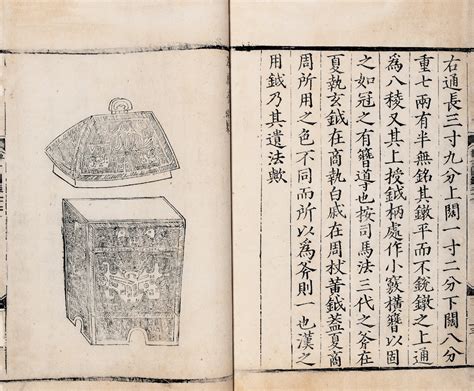 右通長三寸九分上闊一寸二分下闊八分
重七兩有半無銘其鐓平而不銳鐓之上通
為八稜又其上授鉞柄處作小竅橫簪以固
之如冠之有簪導也按司馬法三代之斧在
夏執玄鉞在商執白戚在周杖黃鉞蓋夏商
周所用之色不同而所以為斧則一也漢之
用鉞乃其遺法歟